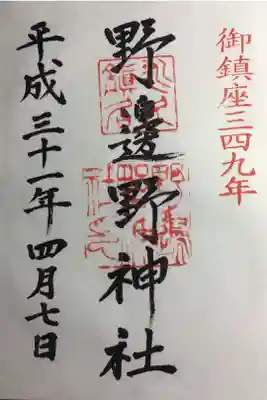 御鎮座三四九年
野邊野神社
平成三十一年四月七日